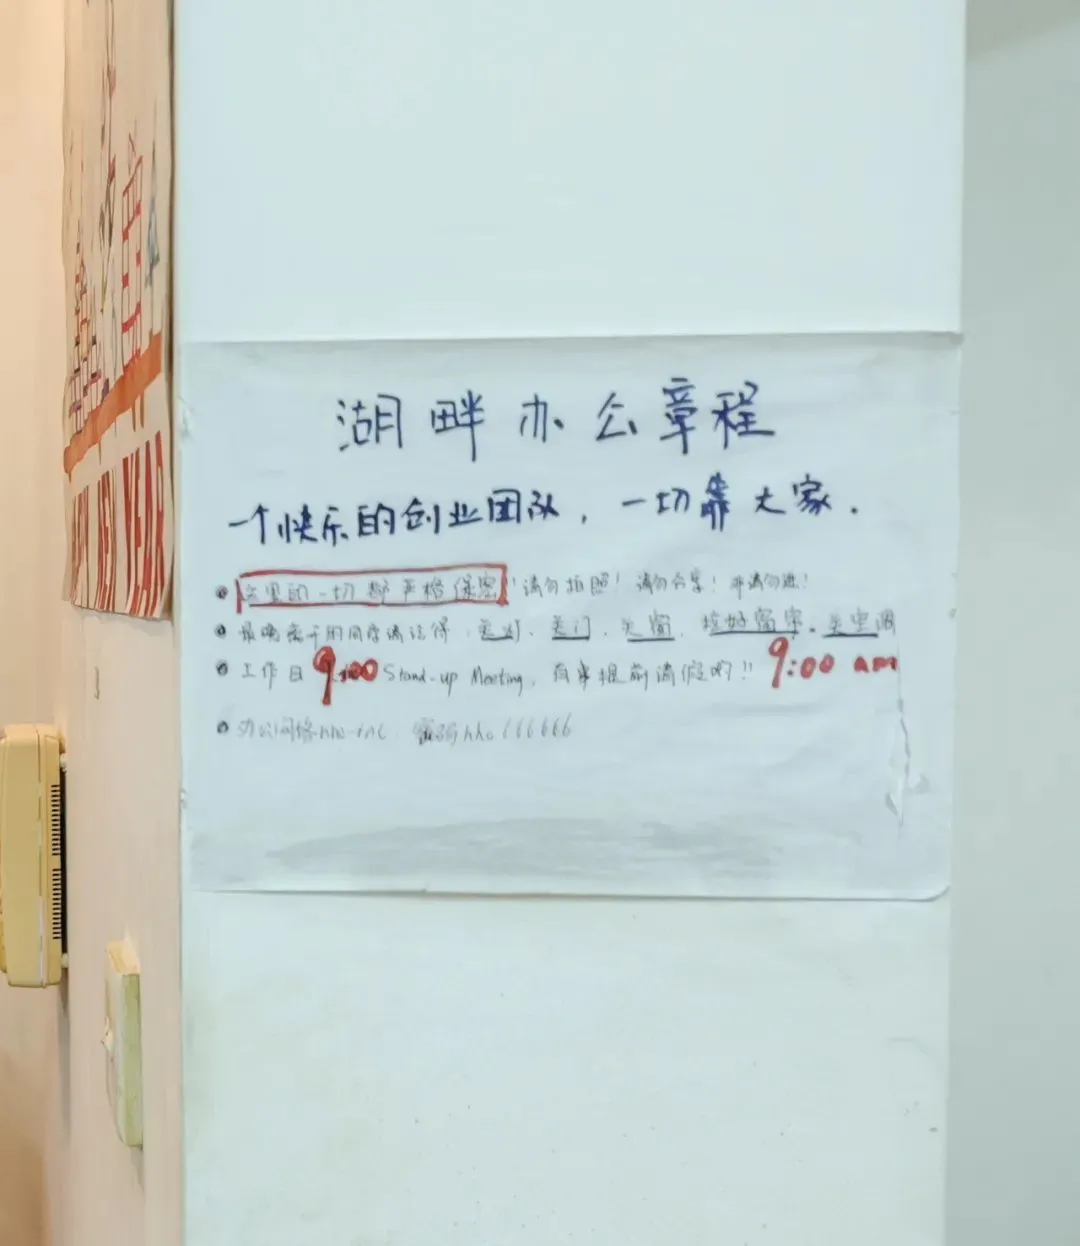 湖畔办公章程
一个快乐的创业团队，一切靠大家.
这里的一切都严格保密！请勿拍照！请勿分享！非请勿进！
最晚离开的同学请记得：关灯、关门、关窗、拉好窗帘、关空调
工作日 9:00 Stand-up Meeting, 有事提前请假哟!! 9:00 am
办公网络 密码
HAPPY NEW YEAR